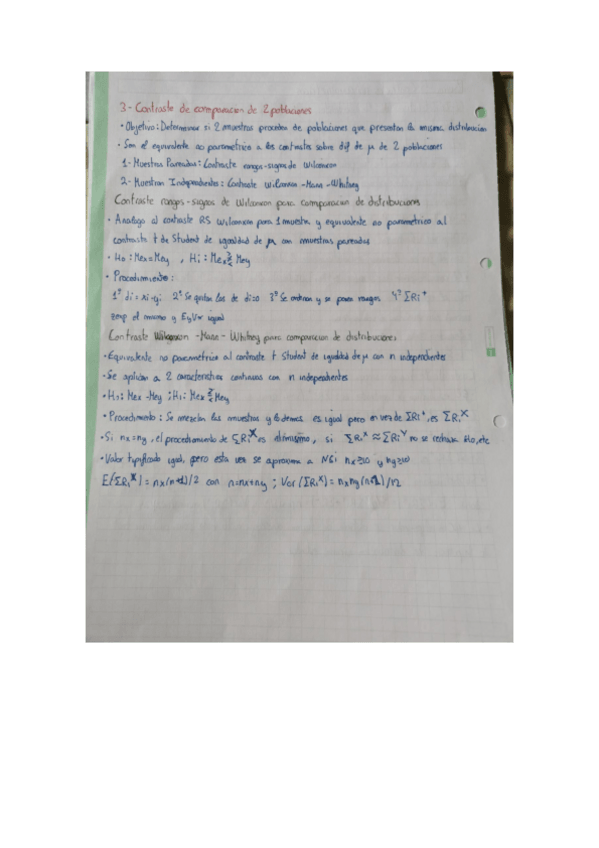 3- Contraste de comparacion de 2 poblaciones
• Objetivo: Determinar si 2 muestras proceden de poblaciones que presentan la misma distribución
• Son el equivalente no parametrico a los contrastes sobre dif de μ de 2 poblaciones
1- Muestras Pareadas: Contraste rangos-signos de Wilcoxon
2- Muestras Independientes: Contraste Wilcoxon-Mann-Whitney
Contraste rangos-signos de Wilcoxon para comparacion de distribuciones
• Analogo al contraste RS Wilcoxon para 1 muestra y equivalente no parametrico al
contraste t de Student de igualdad de μ con muestras pareadas
• H0: Mex=Mey , H1: Mex≷Mey
• Procedimiento:
1º di=xi-yi 2º Se quitan los de di=0 3º Se ordenan y se ponen rangos 4º ΣRi+
el mismo y E y Var igual
Contraste Wilcoxon-Mann-Whitney para comparacion de distribuciones
• Equivalente no parametrico al contraste t Student de igualdad de μ con n independientes
• Se aplican a 2 caracteristicas continuas con n independientes
• H0: Mex=Mey ; H1: Mex≷Mey
• Procedimiento: Se mezclan las muestras y lo demas es igual pero en vez de ΣRi+, es ΣRiX
• Si nx=ny, el procedimiento de ΣRiX es el mismo, si ΣRiX ≈ ΣRiY no se rechaza H0, etc
• Valor tipificado igual, pero esta vez se aproxima a N si nx≥10 y ny≥10
E(ΣRiX)=nx(n+1)/2 con n=nx+ny ; Var(ΣRiX)=nxny(n+1)/12